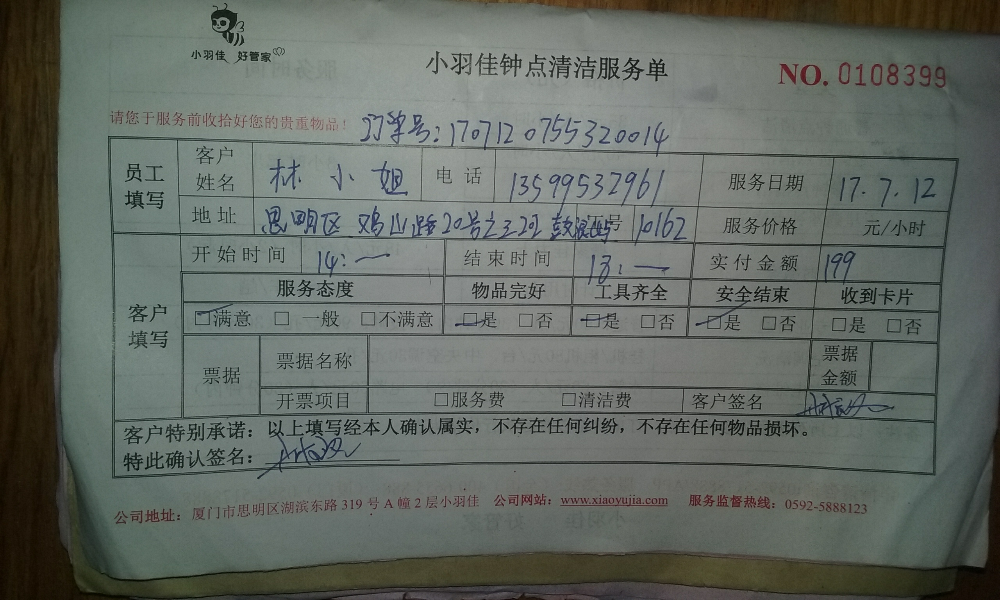 小羽佳 好管家
小羽佳钟点清洁服务单
NO. 0108399
请您于服务前收拾好您的贵重物品!
订单号:1707120755320014
员工填写 客户姓名 林小姐 电话 13599537961 服务日期 17.7.12
地址 思明区 鸡山路20号之三202 工号 10162 服务价格 元/小时
客户填写 开始时间 14:一 结束时间 18:一 实付金额 199
服务态度 物品完好 工具齐全 安全结束 收到卡片
☐满意 ☐一般 ☐不满意 ☐是 ☐否 ☐是 ☐否 ☐是 ☐否 ☐是 ☐否
票据 票据名称 票据金额
开票项目 ☐服务费 ☐清洁费 客户签名
客户特别承诺:以上填写经本人确认属实,不存在任何纠纷,不存在任何物品损坏。
特此确认签名:
公司地址:厦门市思明区湖滨东路 319 号 A 幢 2 层小羽佳 公司网站:www.xiaoyujia.com 服务监督热线:0592-5888123